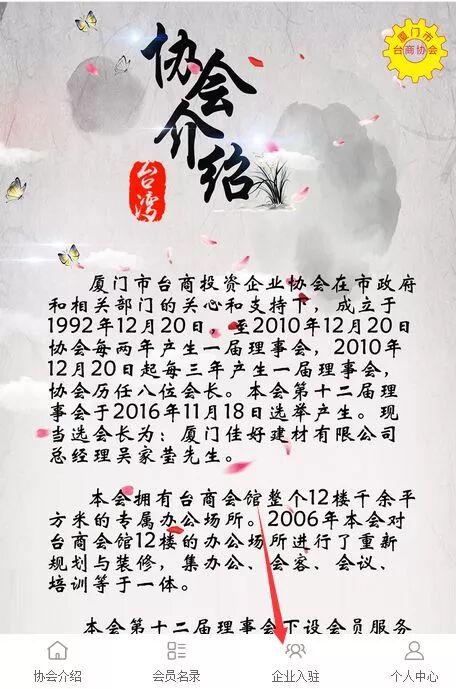 厦门市
台商协会
协会介绍
台湾
厦门市台商投资企业协会在市政府
和相关部门的关心和支持下，成立于
1992年12月20日，至2010年12月20日
协会每两年产生一届理事会，2010年
12月20日起每三年产生一届理事会，
协会历任八位会长。本会第十二届理
事会于2016年11月18日选举产生。现
当选会长为：厦门佳好建材有限公司
总经理吴家莹先生。
本会拥有台商会馆整个12楼千余平
方米的专属办公场所。2006年本会对
台商会馆12楼的办公场所进行了重新
规划与装修，集办公、会客、会议、
培训等于一体。
本会第十二届理事会下设会员服务
协会介绍
会员名录
企业入驻
个人中心